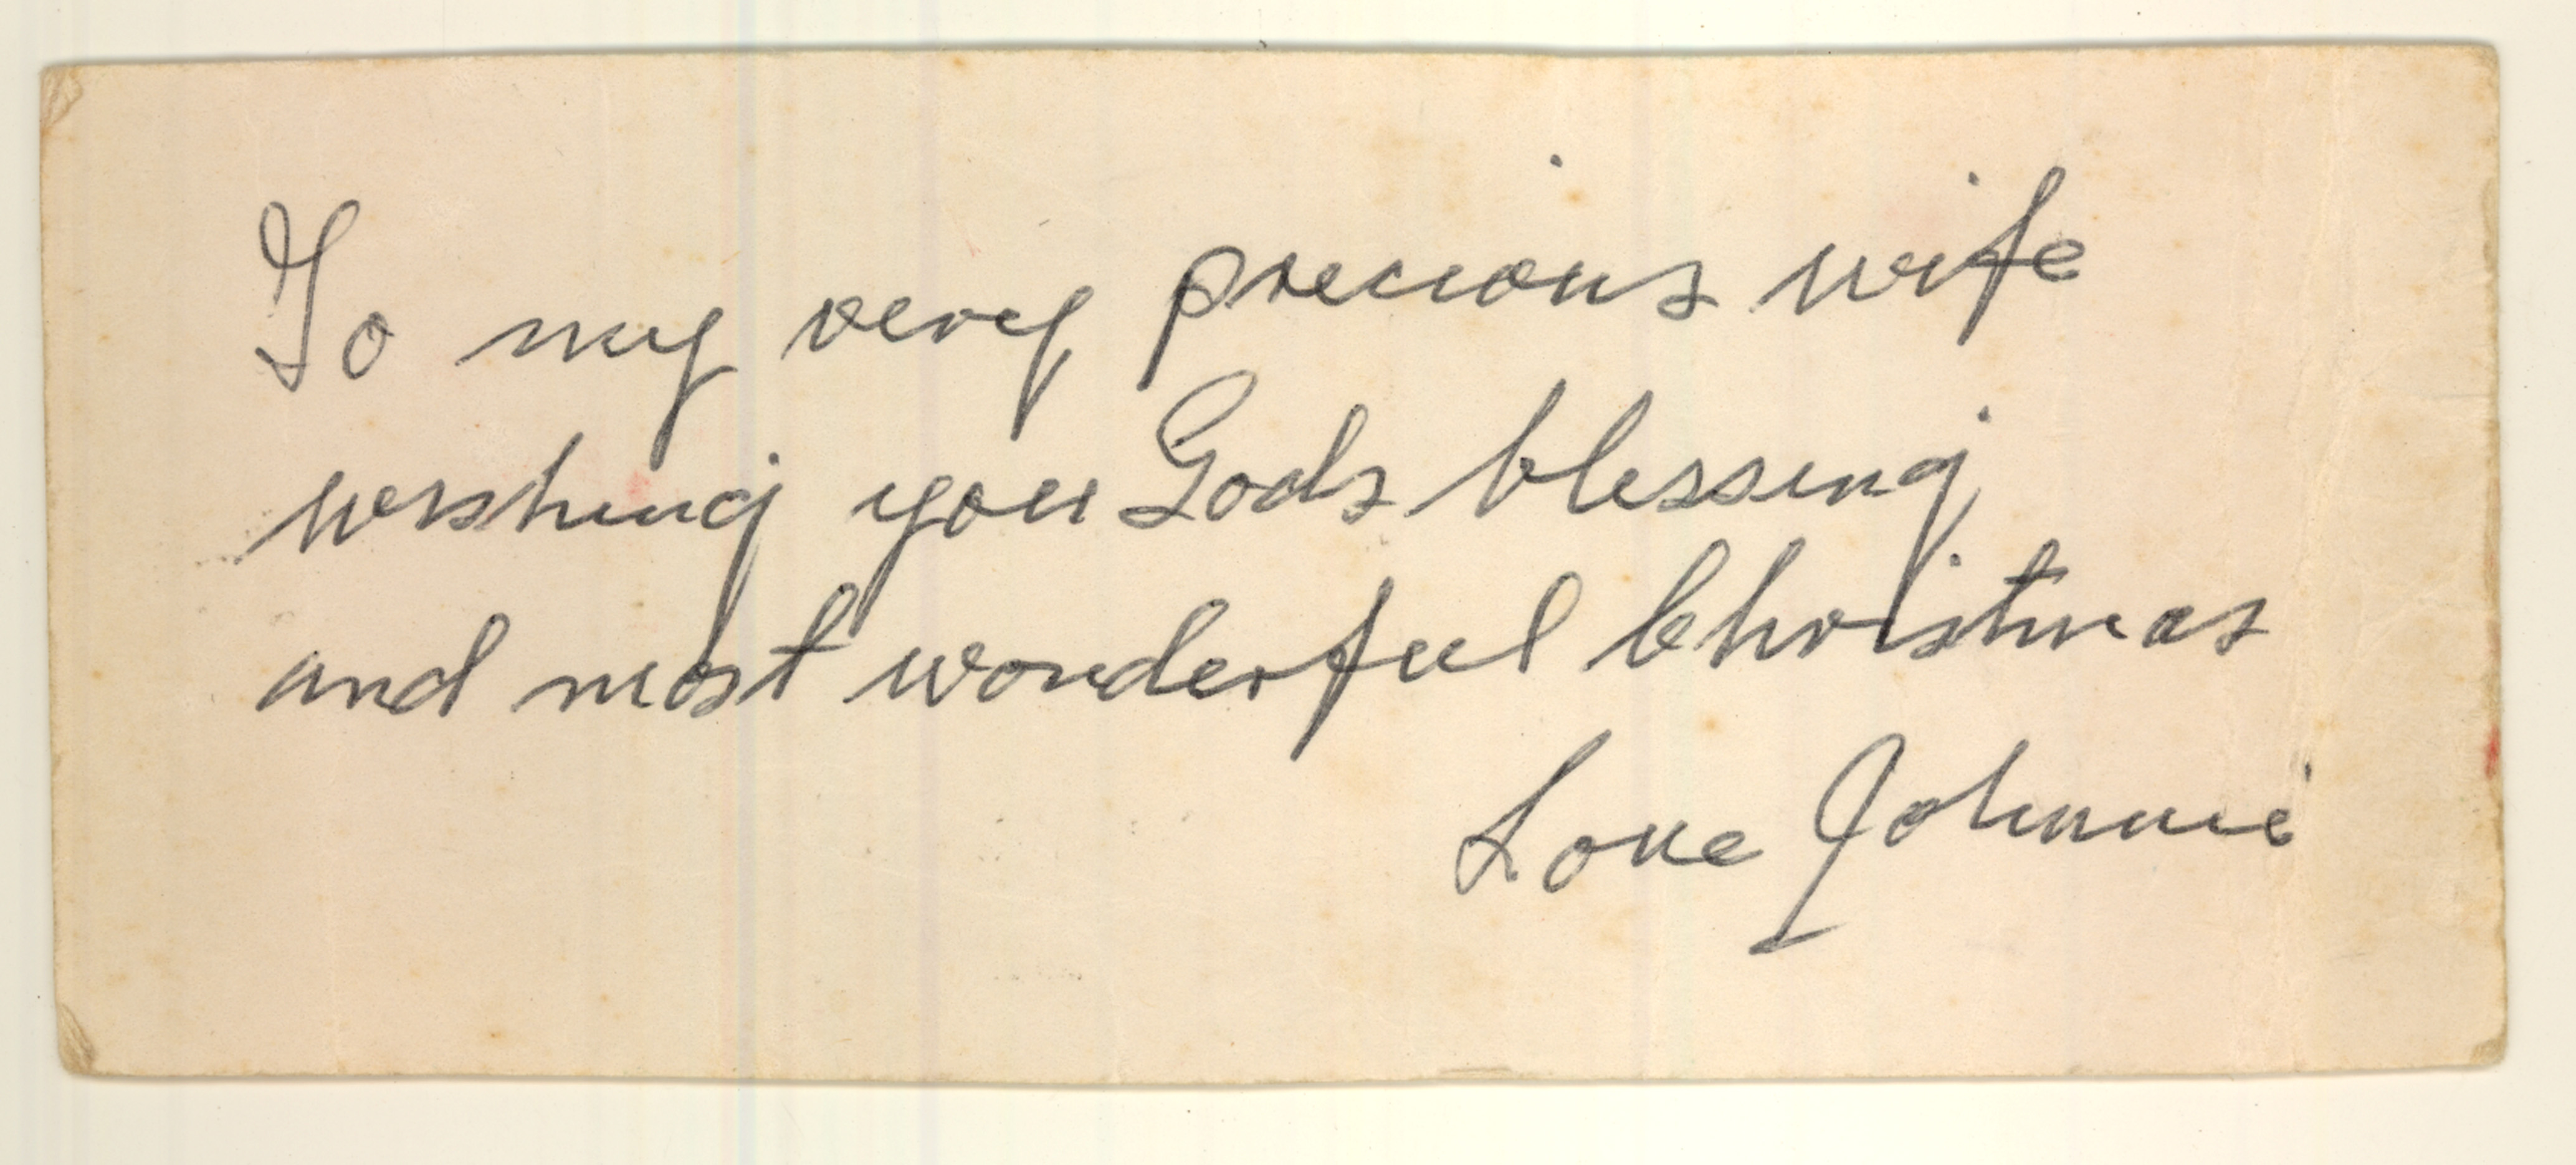 To my very precious wife
wishing you Gods blessing
and most wonderful Christmas
Love Johnnie